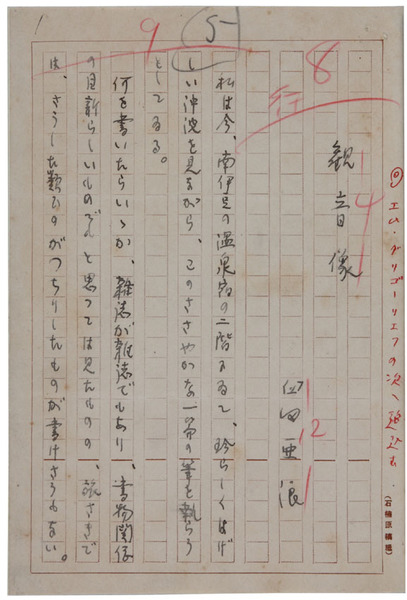 1
9
5
◎エム・グリゴーリエフの次へ追込む
8
行
4
観音像
12
臼田亜浪
私は今、南伊豆の温泉宿の二階にゐて、珍らしくはげ
しい沖波を見ながら、このささやかな一篇の筆を執らう
としてゐる。
何を書いたらいゝか、雑誌が雑誌でもあり、書物関係
の目新らしいものでもと思つては見たものの、旅さきで
は、さうした類ひのがつちりしたものが書けさうもない。